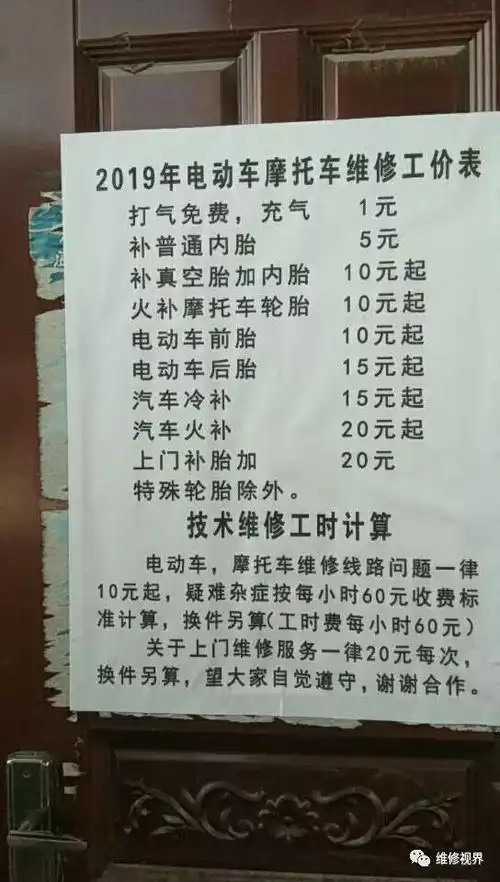 2019年电动车摩托车维修工价表
打气免费，充气 1元
补普通内胎 5元
补真空胎加内胎 10元起
火补摩托车轮胎 10元起
电动车前胎 10元起
电动车后胎 15元起
汽车冷补 15元起
汽车火补 20元起
上门补胎加 20元
特殊轮胎除外。
技术维修工时计算
电动车，摩托车维修线路问题一律
10元起，疑难杂症按每小时60元收费标
准计算，换件另算(工时费每小时60元)
关于上门维修服务一律20元每次，
换件另算，望大家自觉遵守，谢谢合作。
维修视界